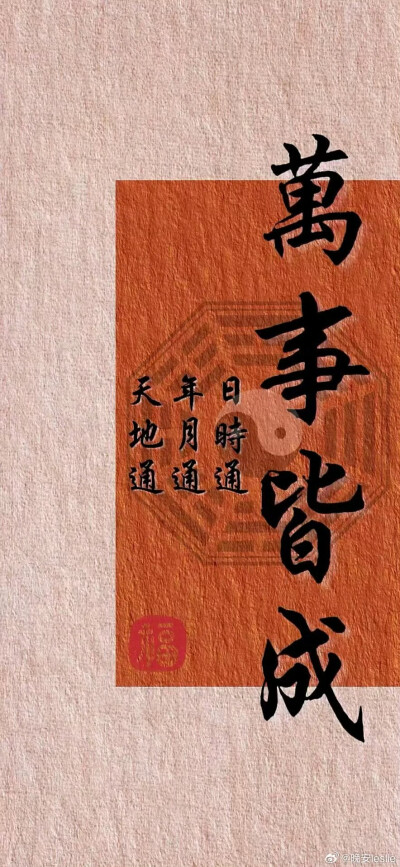 萬事皆成
日時通
年月通
天地通
福
@晚安leslie